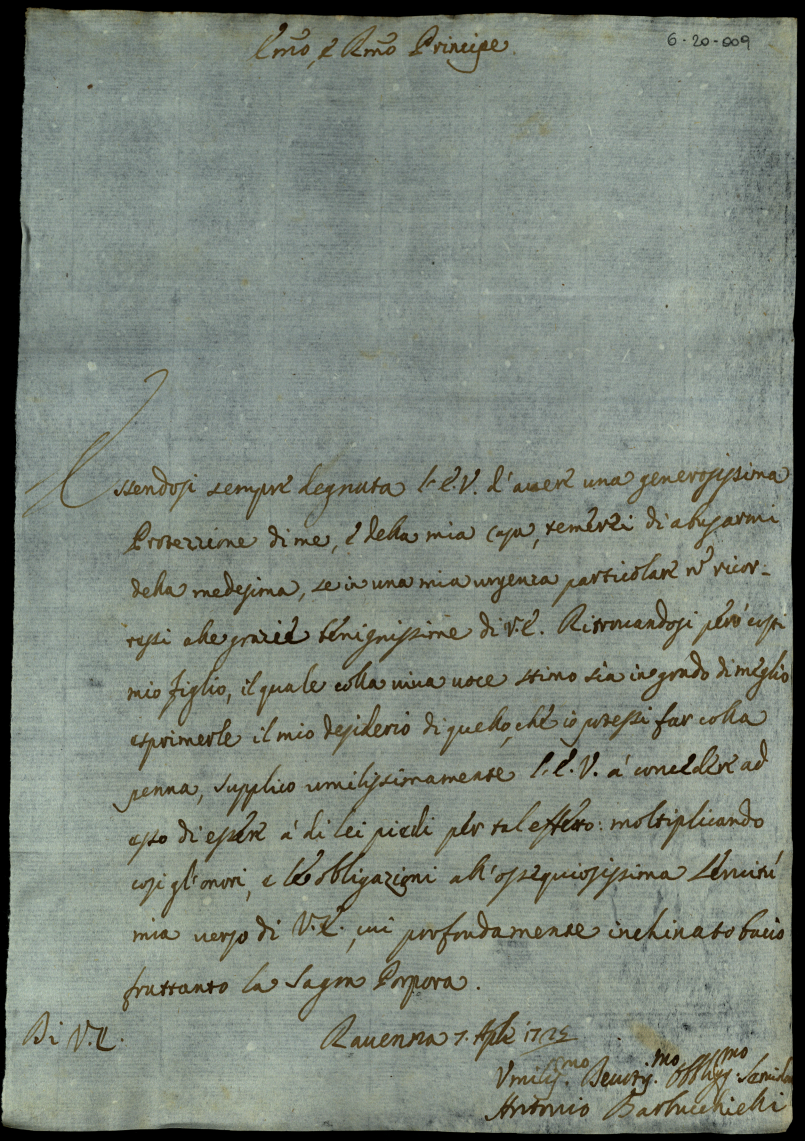 6-20-009
Emo, e Rmo Principe
Essendosi sempre degnata l'E.V. d'aver una generosissima
Protezzione di me, e della mia casa, temerei di abusarmi
della medesima, se in una mia urgenza particolare nō ricor-
ressi alle grazie benignissime di V.E. Ritrovandosi però costì
mio figlio, il quale colla viva voce stimo sia in grado di meglio
esprimerle il mio desiderio di quello, che io potessi far colla
penna, supplico umilissimamente l'E.V. à concedere ad
esso di esser à di lei piedi per tal effetto: moltiplicando
così gl'onori, e le obligazioni all'ossequiosissima servitù
mia verso di V.E., cui profondamente inchinato bacio
fruttanto la Sagra Porpora.
Di V.E. Ravenna 7. Aple
Umiliss.mo Devotis.mo Obbligs.mo
Antonio